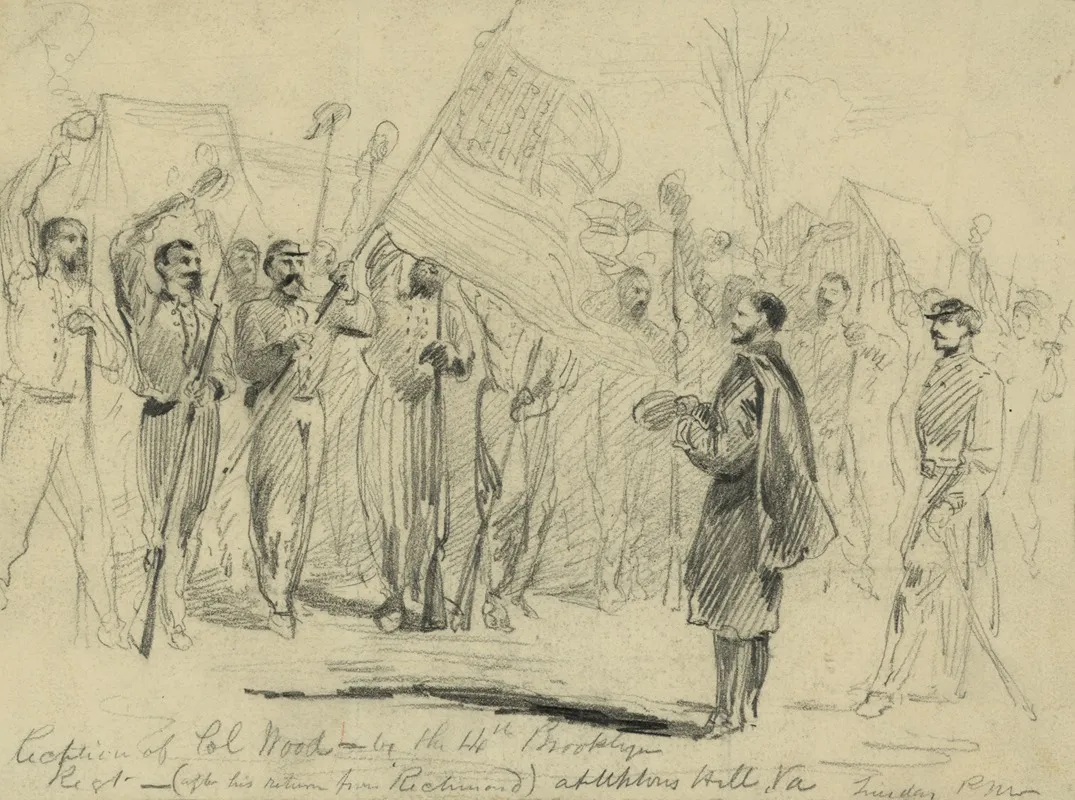 Reception of Col Wood — by the 14th Brooklyn
Regt — (after his return from Richmond) at Uptons Hill, Va Sunday P.M.